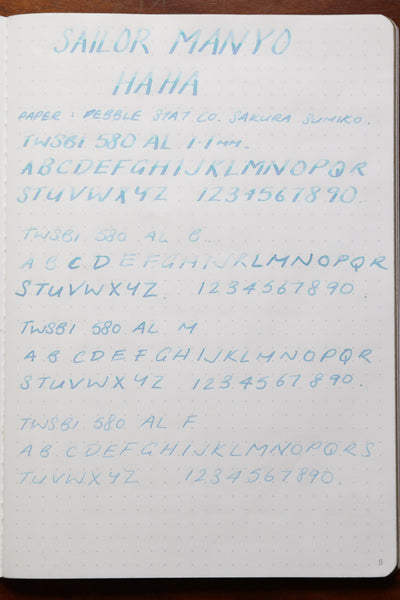 SAILOR MANYO
HAHA
PAPER : PEBBLE STAT CO. SAKURA SUMIKO.
TWSBI 580 AL 1.1mm.
ABCDEFGHIJKLMNOPQR
STUVWXYZ 1234567890.
TWSBI 580 AL B
ABCDEFGHIJKLMNOPQR
STUVWXYZ. 1234567890.
TWSBI 580 AL M
ABCDEFGHIJKLMNOPQR
STUVWXYZ 1234567890.
TWSBI 580 AL F
ABCDEFGHIJKLMNOPQRS
TUVWXYZ 1234567890.
5